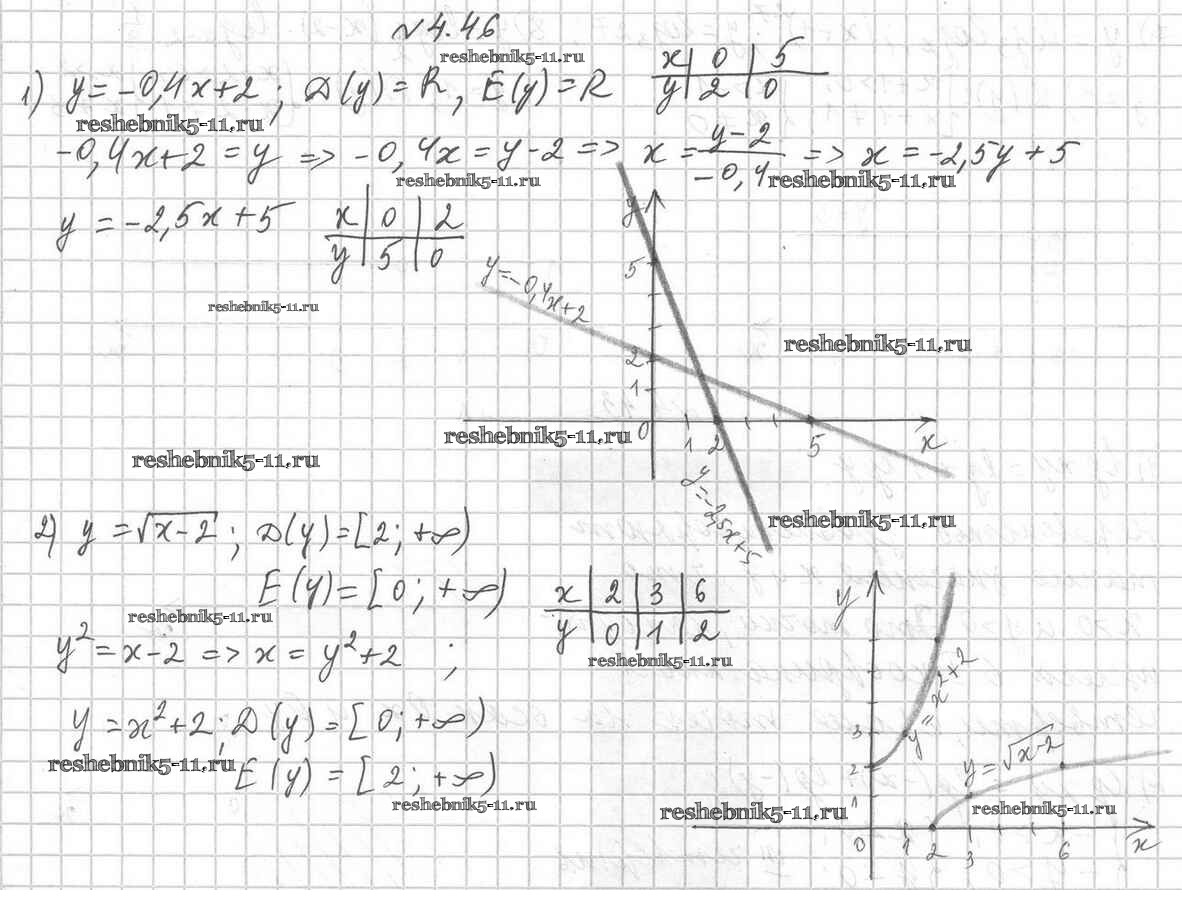 № 4.46
reshebnik5-11.ru
1) y = -0,4x+2 ; D(y) = R, E(y) = R
x | 0 | 5
y | 2 | 0
reshebnik5-11.ru
-0,4x+2 = y => -0,4x = y-2 => x = (y-2)/(-0,4) => x = -2,5y+5
reshebnik5-11.ru
reshebnik5-11.ru
y = -2,5x+5
x | 0 | 2
y | 5 | 0
reshebnik5-11.ru
y
5
y=-0,4x+2
2
1
reshebnik5-11.ru
reshebnik5-11.ru
0 1 2 5 x
y=-2,5x+5
reshebnik5-11.ru
2) y = √x-2 ; D(y) = [2; +∞)
reshebnik5-11.ru
E(y) = [0; +∞)
x | 2 | 3 | 6
y | 0 | 1 | 2
reshebnik5-11.ru
reshebnik5-11.ru
y² = x-2 => x = y²+2 ;
y = x²+2 ; D(y) = [0; +∞)
reshebnik5-11.ru
E(y) = [2; +∞)
reshebnik5-11.ru
y
y=x²+2
3
2
y=√x-2
1
reshebnik5-11.ru
reshebnik5-11.ru
0 1 2 3 6 x